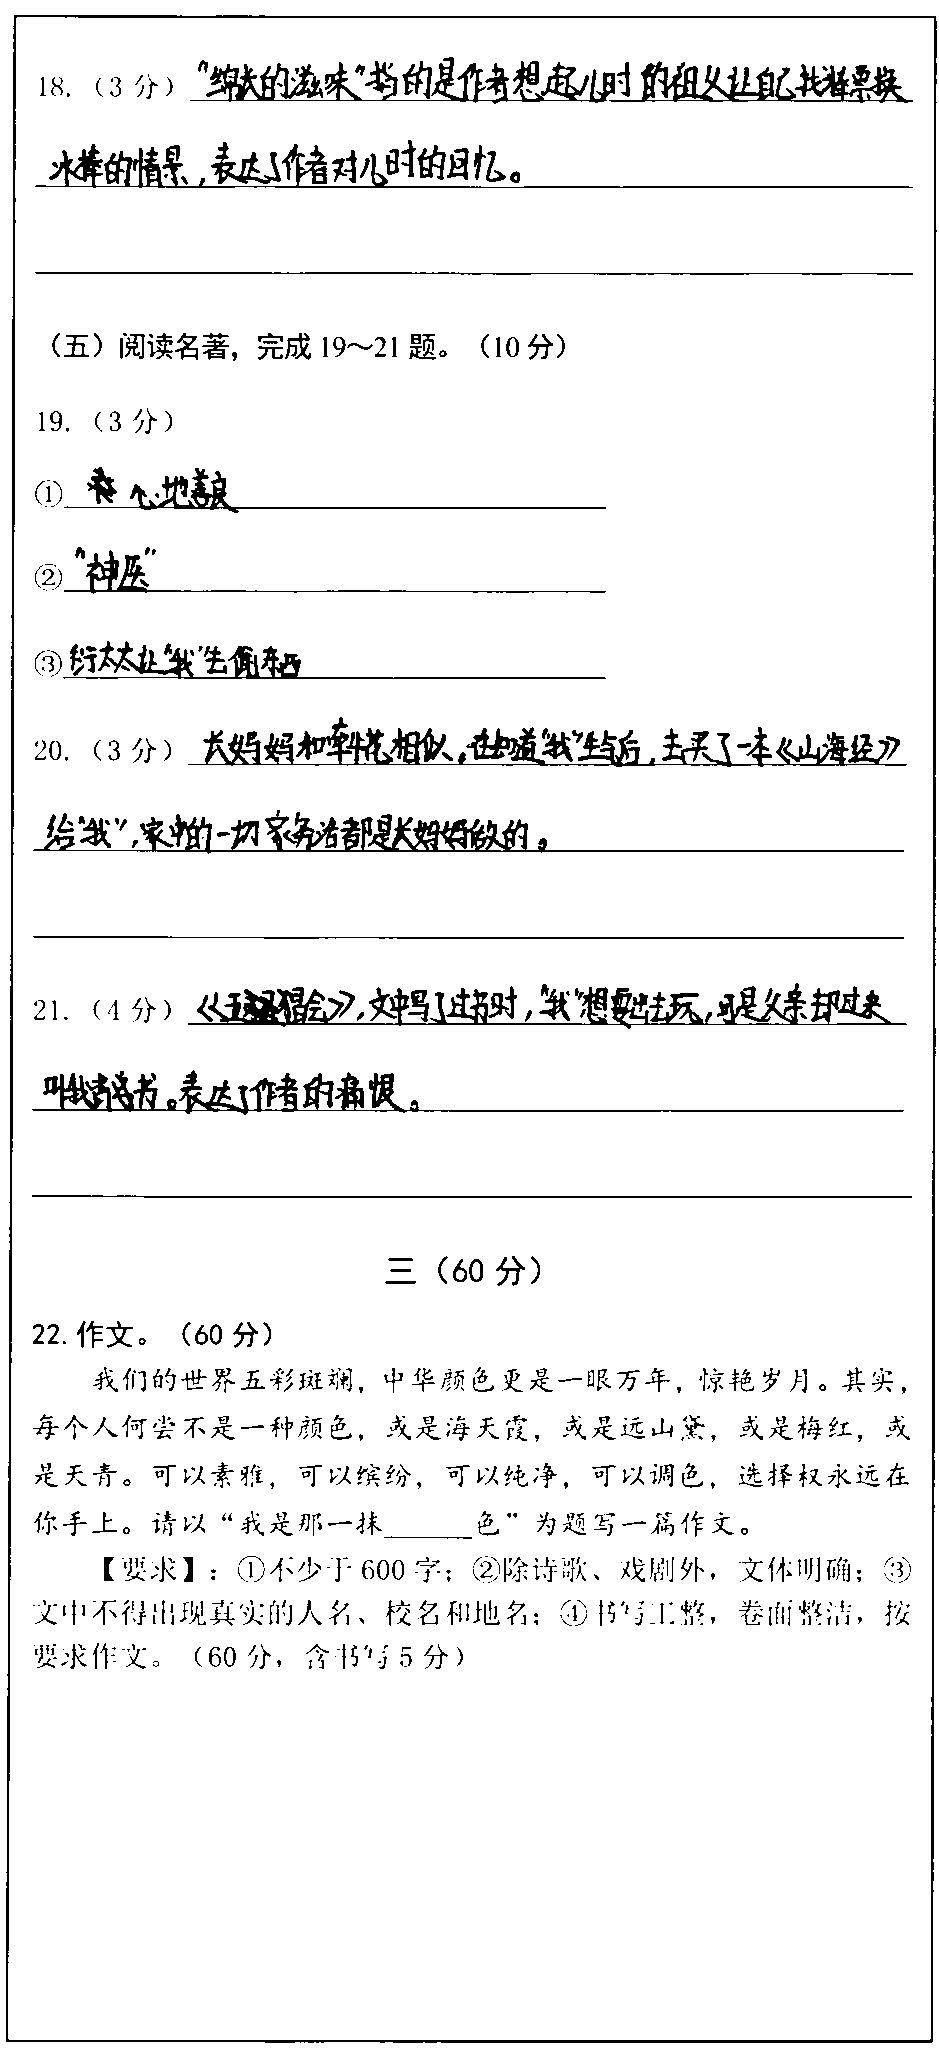 18.（3 分）“绵长的滋味”指的是作者想起儿时的祖父让自己找粮票换
冰棒的情景，表达了作者对儿时的回忆。
（五）阅读名著，完成 19～21 题。（10 分）
19.（3 分）
① 心地善良
②“神医”
③衍太太让“我”去偷东西
20.（3 分）长妈妈和牵牛花相似。在知道“我”生与后，去买了一本《山海经》
给“我”，家中的一切家务活都是长妈妈做的。
21.（4 分）《五猖会》，文中写了过节时，“我”想要出去玩，可是父亲却过来
叫我背书。表达了作者的痛恨。
三（60 分）
22.作文。（60 分）
我们的世界五彩斑斓，中华颜色更是一眼万年，惊艳岁月。其实，
每个人何尝不是一种颜色，或是海天霞，或是远山黛，或是梅红，或
是天青。可以素雅，可以缤纷，可以纯净，可以调色，选择权永远在
你手上。请以“我是那一抹______色”为题写一篇作文。
【要求】：①不少于 600 字；②除诗歌、戏剧外，文体明确；③
文中不得出现真实的人名、校名和地名；④书写工整，卷面整洁，按
要求作文。（60 分，含书写 5 分）